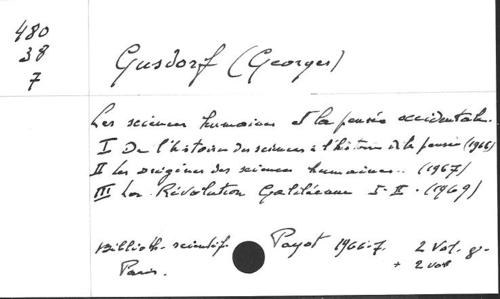 480
38
7
Gusdorf (Georges)
Les sciences humaines et la pensée occidentale.
I De l'histoire des sciences à l'histoire de la pensée (1966)
II Les origines des sciences humaines.. (1967)
III La Révolution Galiléenne I-II. (1969)
Biblioth. scientif. Payot 1966-7. 2 Vol. gr-
Paris. + 2 vol